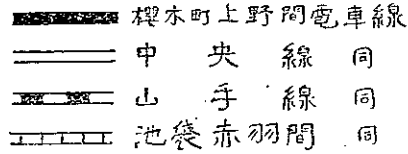 櫻木町上野間電車線
中央線 同
山手線 同
池袋赤羽間 同